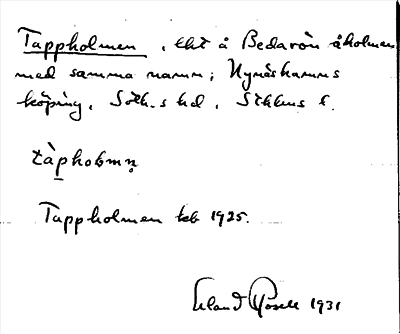 Tappholmen, ebt å Bedarön å holmen
med samma namn; Nynäshamns
köping, Soth.s hd, Sthlms l.
tàphoƚmn̥
Tappholmen tkb 1925.
Erland Rosell 1931